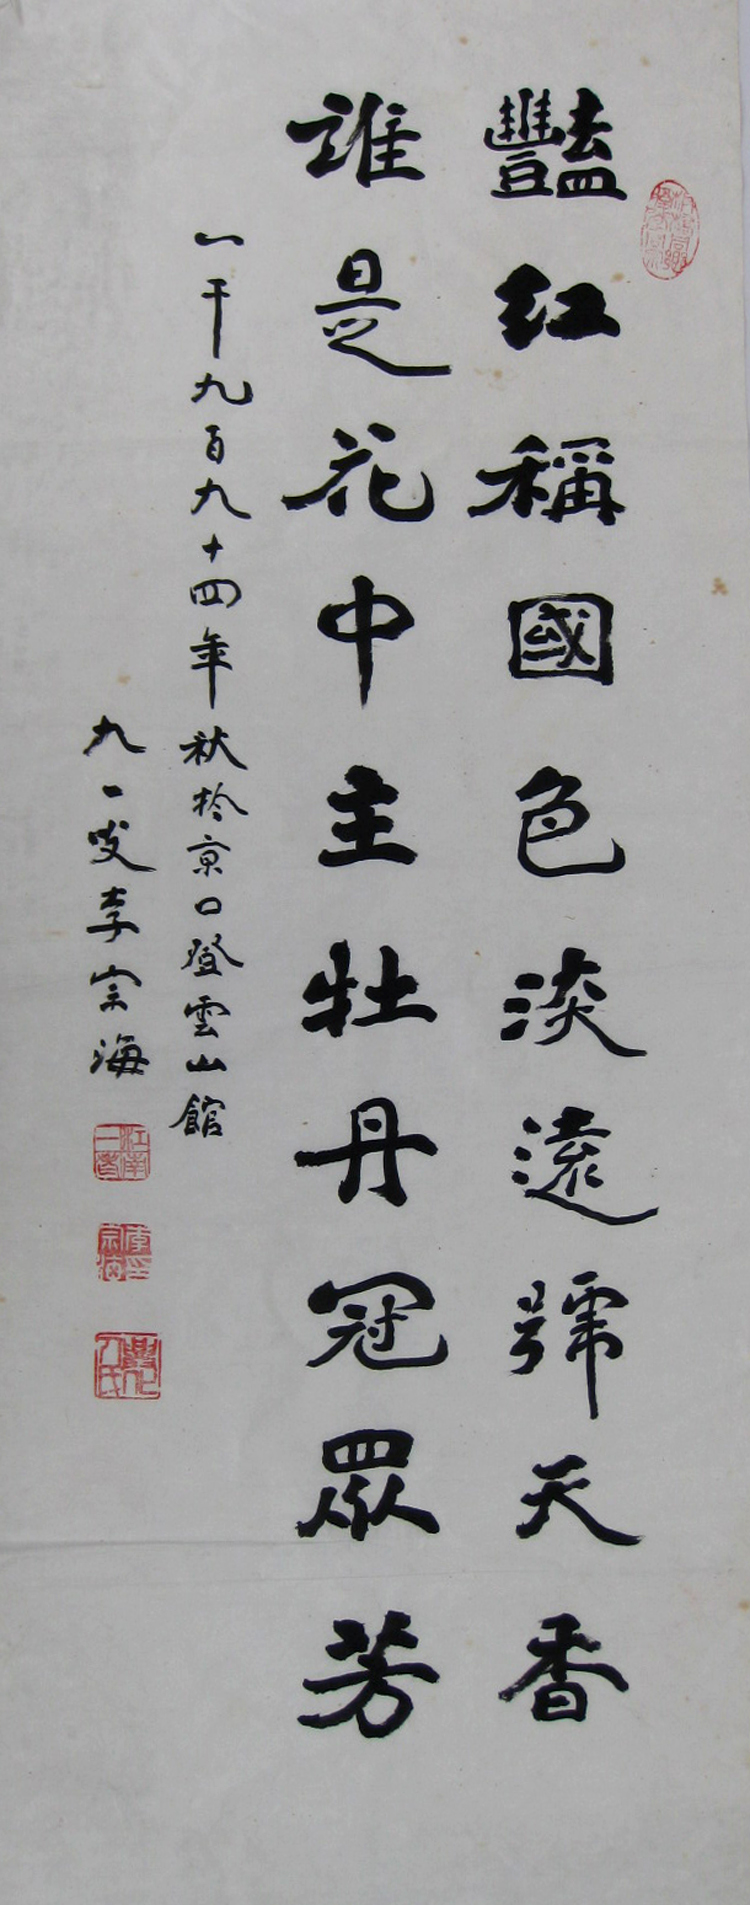 豔紅稱國色淡遠號天香
誰是花中主牡丹冠眾芳
一千九百九十四年秋於京口登雲山館
九一叟李宗海